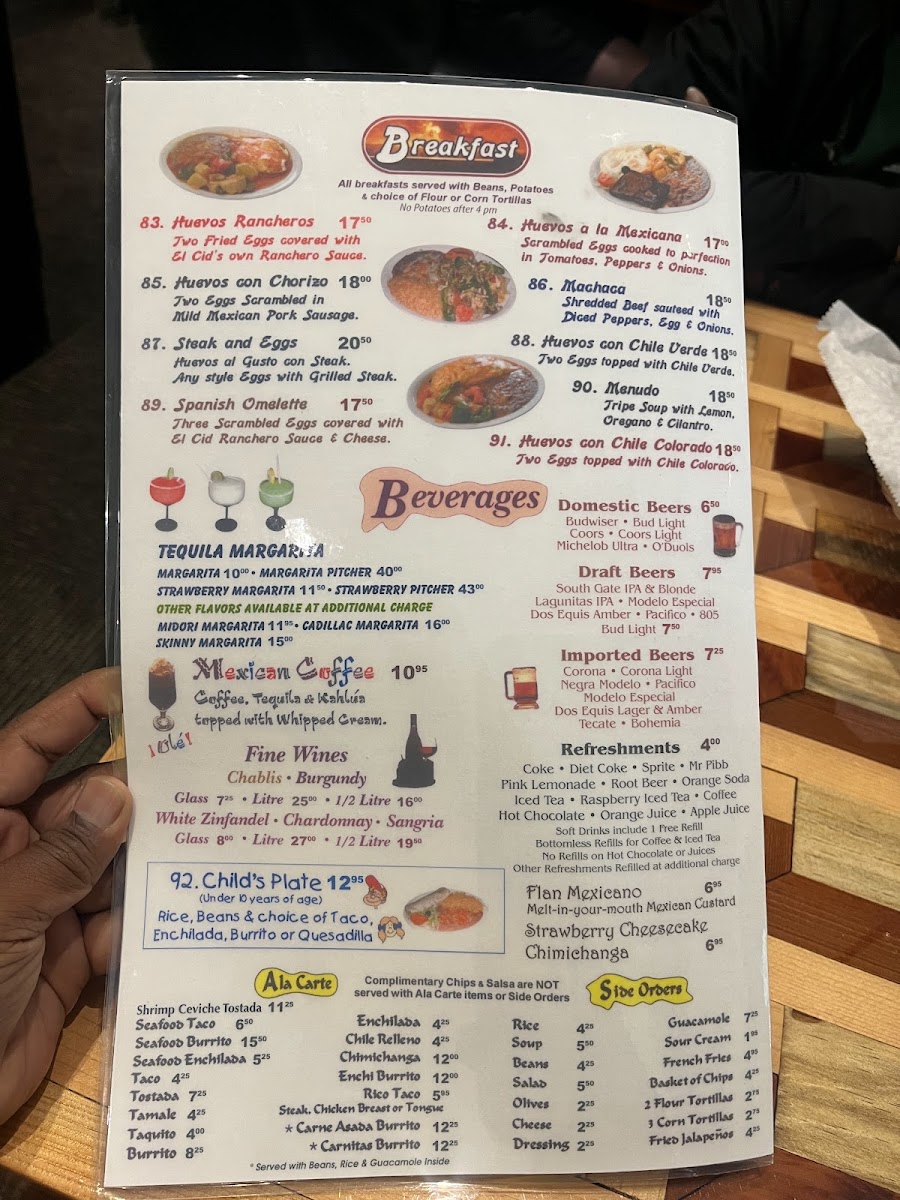 Breakfast
All breakfasts served with Beans, Potatoes
& choice of Flour or Corn Tortillas
No Potatoes after 4 pm
83. Huevos Rancheros 17⁵⁰
Two Fried Eggs covered with
El Cid's own Ranchero Sauce.
85. Huevos con Chorizo 18⁰⁰
Two Eggs Scrambled in
Mild Mexican Pork Sausage.
87. Steak and Eggs 20⁵⁰
Huevos al Gusto con Steak.
Any style Eggs with Grilled Steak.
89. Spanish Omelette 17⁵⁰
Three Scrambled Eggs covered with
El Cid Ranchero Sauce & Cheese.
84. Huevos a la Mexicana 17⁰⁰
Scrambled Eggs cooked to perfection
in Tomatoes, Peppers & Onions.
86. Machaca 18⁵⁰
Shredded Beef sauteed with
Diced Peppers, Egg & Onions.
88. Huevos con Chile Verde 18⁵⁰
Two Eggs topped with Chile Verde.
90. Menudo 18⁵⁰
Tripe Soup with Lemon,
Oregano & Cilantro.
91. Huevos con Chile Colorado 18⁵⁰
Two Eggs topped with Chile Colorado.
Beverages
TEQUILA MARGARITA
MARGARITA 10⁰⁰ • MARGARITA PITCHER 40⁰⁰
STRAWBERRY MARGARITA 11⁵⁰ • STRAWBERRY PITCHER 43⁰⁰
OTHER FLAVORS AVAILABLE AT ADDITIONAL CHARGE
MIDORI MARGARITA 11⁹⁵ • CADILLAC MARGARITA 16⁰⁰
SKINNY MARGARITA 15⁰⁰
Mexican Coffee 10⁹⁵
Coffee, Tequila & Kahlúa
topped with Whipped Cream.
¡Olé!
Fine Wines
Chablis • Burgundy
Glass 7²⁵ • Litre 25⁰⁰ • 1/2 Litre 16⁰⁰
White Zinfandel • Chardonnay • Sangria
Glass 8⁰⁰ • Litre 27⁰⁰ • 1/2 Litre 19⁵⁰
Domestic Beers 6⁵⁰
Budwiser • Bud Light
Coors • Coors Light
Michelob Ultra • O'Duols
Draft Beers 7⁹⁵
South Gate IPA & Blonde
Lagunitas IPA • Modelo Especial
Dos Equis Amber • Pacifico • 805
Bud Light 7⁵⁰
Imported Beers 7²⁵
Corona • Corona Light
Negra Modelo • Pacifico
Modelo Especial
Dos Equis Lager & Amber
Tecate • Bohemia
Refreshments 4⁰⁰
Coke • Diet Coke • Sprite • Mr Pibb
Pink Lemonade • Root Beer • Orange Soda
Iced Tea • Raspberry Iced Tea • Coffee
Hot Chocolate • Orange Juice • Apple Juice
Soft Drinks include 1 Free Refill
Bottomless Refills for Coffee & Iced Tea
No Refills on Hot Chocolate or Juices
Other Refreshments Refilled at additional charge
92. Child's Plate 12⁹⁵
(Under 10 years of age)
Rice, Beans & choice of Taco,
Enchilada, Burrito or Quesadilla
Flan Mexicano 6⁹⁵
Melt-in-your-mouth Mexican Custard
Strawberry Cheesecake
Chimichanga 6⁹⁵
Ala Carte
Complimentary Chips & Salsa are NOT
served with Ala Carte items or Side Orders
Side Orders
Shrimp Ceviche Tostada 11²⁵
Seafood Taco 6⁵⁰
Seafood Burrito 15⁵⁰
Seafood Enchilada 5²⁵
Taco 4²⁵
Tostada 7²⁵
Tamale 4²⁵
Taquito 4⁰⁰
Burrito 8²⁵
Enchilada 4²⁵
Chile Relleno 4²⁵
Chimichanga 12⁰⁰
Enchi Burrito 12⁰⁰
Rico Taco 5⁹⁵
Steak, Chicken Breast or Tongue
* Carne Asada Burrito 12²⁵
* Carnitas Burrito 12²⁵
* Served with Beans, Rice & Guacamole Inside
Rice 4²⁵
Soup 5⁵⁰
Beans 4²⁵
Salad 5⁵⁰
Olives 2²⁵
Cheese 2²⁵
Dressing 2²⁵
Guacamole 7²⁵
Sour Cream 1⁹⁵
French Fries 4⁹⁵
Basket of Chips 4²⁵
2 Flour Tortillas 2⁷⁵
3 Corn Tortillas 2⁷⁵
Fried Jalapeños 4²⁵